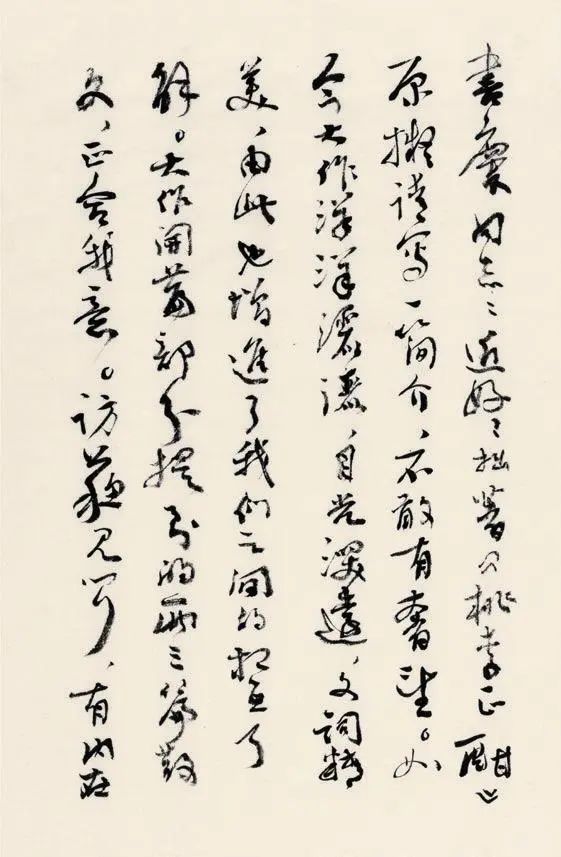 书麋同志：近好：拙著《桃李正酣》
原拟请写一简介，不敢有奢望。如
今大作洋洋洒洒，目光深远，文词精
美，由此也增进了我们之间的相互了
解。大作开首部分提到的两三篇散
文，正合我意。访苏见闻，有内在